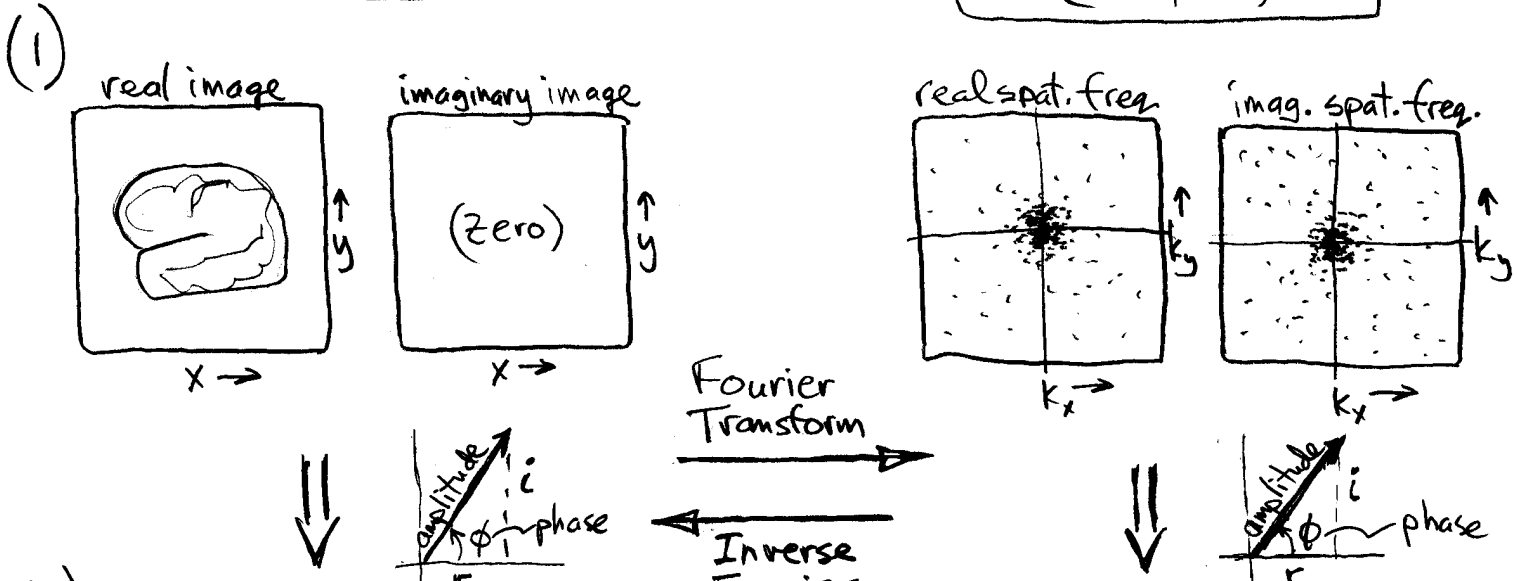 (1)
real image
imaginary image
real spat. freq.
imag. spat. freq.
(zero)
y
y
ky
ky
x
x
kx
kx
Fourier
Transform
amplitude
i
ϕ
phase
r
Inverse
amplitude
i
ϕ
phase
r